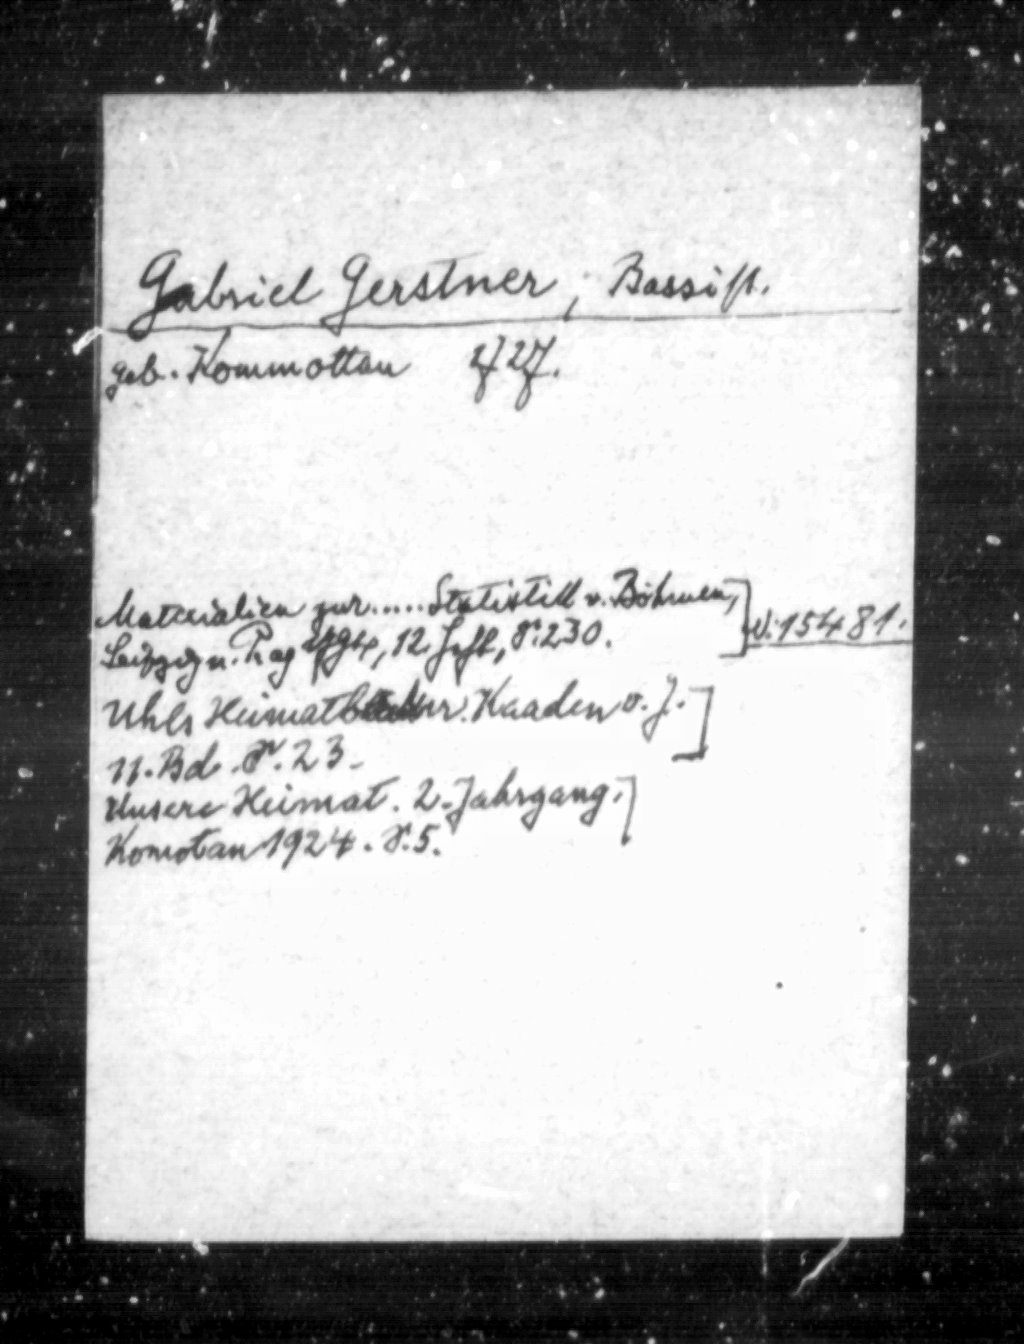 Gabriel Gerstner, Bassist.
geb. Kommottau 1727.
Materialien zur..... Statistik v. Böhmen,
Leipzig u. Prag 1794, 12 Heft, S. 230.
V. 15481.
Uhls Heimatbücher. Kaaden o. J.
11. Bd. S. 23.
Unsere Heimat. 2. Jahrgang,
Komotau 1924. S. 5.